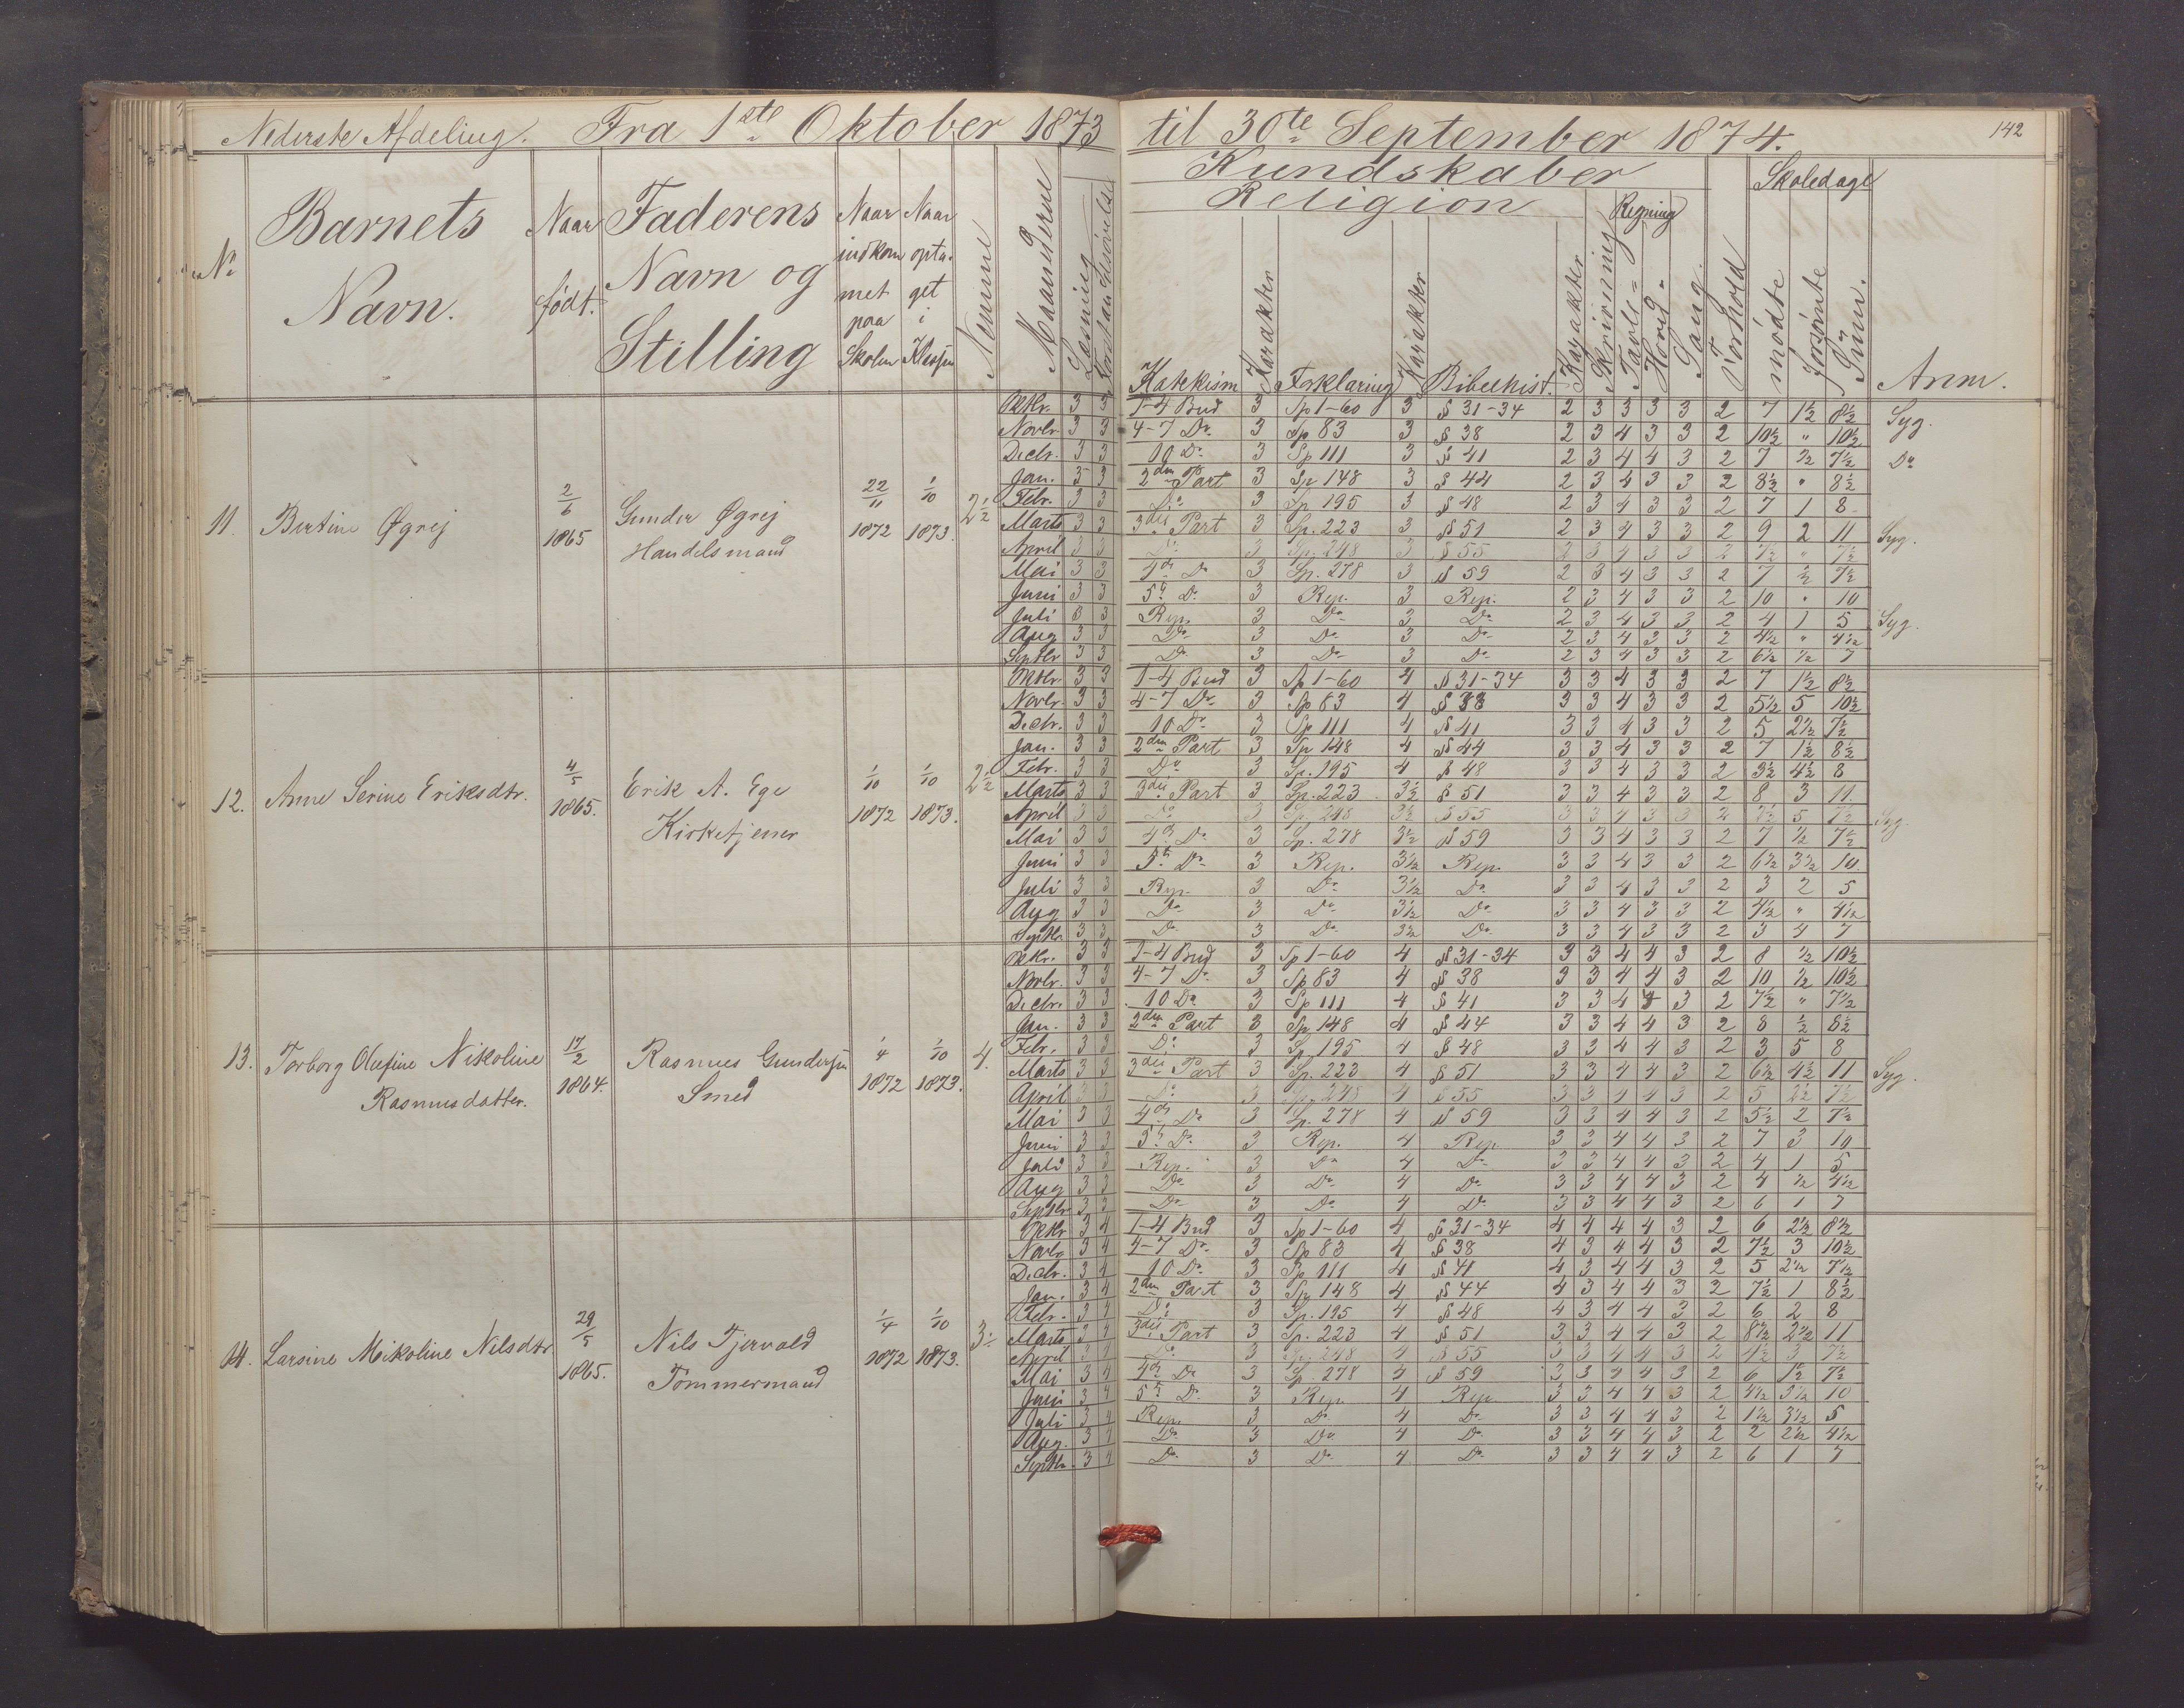 Nederste Afdeling. Fra 1ste Oktober 1873 til 30te September 1874. 142
Kundskaber
Religion
Regning
Skoledage
No
Barnets Navn.
Naar født.
Faderens Navn og Stilling
Naar indkommet paa Skolen
Naar optaget i Klassen
Nemme
Maanederne
Læsning
Forstandsøvelse
Katekism
Karakter
Forklaring
Karakter
Bibelhist.
Karakter
Skrivning
Tavle-
Hoved-
Sang.
Forhold
mødte
forsømte
Sum.
Anm.
11. Bertine Øgrej 2/6 1865 Gunder Øgrej Handelsmand 22/11 1872 1/10 1873. 2½
Oktbr. 3 3 1-4 Bud 3 Sp 1-60 3 § 31-34 2 3 3 3 3 2 7 1½ 8½ Syg.
Novbr. 3 3 4-7 Do 3 Sp 83 3 § 38 2 3 4 3 3 2 10½ " 10½
Decbr. 3 3 10 Do 3 Sp 111 3 § 41 2 3 4 4 3 2 7 ½ 7½ Do
Jan. 3 3 2den Part 3 Sp 148 3 § 44 2 3 4 3 3 2 8½ " 8½
Febr. 3 3 Do 3 Sp 195 3 § 48 2 3 4 3 3 2 7 1 8
Marts 3 3 3die Part 3 Sp. 223 3 § 51 2 3 4 3 3 2 9 2 11 Syg.
April 3 3 Do 3 Sp. 248 3 § 55 2 3 4 3 3 2 7½ " 7½
Mai 3 3 4de Do 3 Sp. 278 3 § 59 2 3 4 3 3 2 7 ½ 7½
Juni 3 3 5te Do 3 Rep. 3 Rep. 2 3 4 3 3 2 10 " 10
Juli 3 3 Rep. 3 Do 3 Do 2 3 4 3 3 2 4 1 5 Syg.
Aug 3 3 Do 3 Do 3 Do 2 3 4 3 3 2 4½ " 4½
Septbr 3 3 Do 3 Do 3 Do 2 3 4 3 3 2 6½ ½ 7
12. Anne Serine Eriksdtr. 4/5 1865. Erik A. Ege Kirketjener 1/10 1872 1/10 1873. 2½
Oktbr. 3 3 1-4 Bud 3 Sp 1-60 4 § 31-34 3 3 4 3 3 2 7 1½ 8½
Novbr. 3 3 4-7 Do 3 Sp 83 4 § 38 3 3 4 3 3 2 5½ 5 10½
Decbr. 3 3 10 Do 3 Sp 111 4 § 41 3 3 4 3 3 2 5 2½ 7½
Jan. 3 3 2den Part 3 Sp 148 4 § 44 3 3 4 3 3 2 7 1½ 8½
Febr. 3 3 Do 3 Sp. 195 4 § 48 3 3 4 3 3 2 3½ 4½ 8
Marts 3 3 3die Part 3 Sp. 223 3½ § 51 3 3 4 3 3 2 8 3 11.
April 3 3 Do 3 Sp 248 3½ § 55 3 3 4 3 3 2 2½ 5 7½ Syg.
Mai 3 3 4de Do 3 Sp. 278 3½ § 59 3 3 4 3 3 2 7 ½ 7½
Juni 3 3 5te Do 3 Rep. 3½ Rep. 3 3 4 3 3 2 6½ 3½ 10
Juli 3 3 Rep. 3 Do 3½ Do 3 3 4 3 3 2 3 2 5
Aug 3 3 Do 3 Do 3½ Do 3 3 4 3 3 2 4½ " 4½
Septbr 3 3 Do 3 Do 3½ Do 3 3 4 3 3 2 3 4 7
13. Torborg Olufine Nikoline Rasmusdatter. 17/2 1864. Rasmus Gundersen Smed 1/4 1872 1/10 1873. 4.
Oktbr. 3 3 1-4 Bud 3 Sp 1-60 4 § 31-34 3 3 4 4 3 2 8 ½ 10½
Novbr. 3 3 4-7 Do 3 Sp 83 4 § 38 3 3 4 4 3 2 10 ½ 10½
Decbr. 3 3 10 Do 3 Sp 111 4 § 41 3 3 4 4 3 2 7½ " 7½
Jan. 3 3 2den Part 3 Sp. 148 4 § 44 3 3 4 4 3 2 8 ½ 8½
Febr. 3 3 Do 3 Sp. 195 4 § 48 3 3 4 4 3 2 3 5 8
Marts 3 3 3die Part 3 Sp. 223 4 § 51 3 3 4 4 3 2 6½ 4½ 11 Syg.
April 3 3 Do 3 Sp. 248 4 § 55 3 3 4 4 3 2 5 2½ 7½
Mai 3 3 4de Do 3 Sp. 278 4 § 59 3 3 4 4 3 2 5½ 2 7½
Juni 3 3 5te Do 3 Rep. 4 Rep. 3 3 4 4 3 2 7 3 10
Juli 3 3 Rep. 3 Do 4 Do 3 3 4 4 3 2 4 1 5
Aug 3 3 Do 3 Do 4 Do 3 3 4 4 3 2 4 ½ 4½
Septbr 3 3 Do 3 Do 4 Do 3 3 4 4 3 2 6 1 7
14. Larsine Nikoline Nilsdtr 29/5 1865. Nils Tjervald Tømmermand 1/4 1872 1/10 1873. 3½
Oktbr 3 4 1-4 Bud 3 Sp 1-60 4 § 31-34 4 4 4 4 3 2 6 2½ 8½
Novbr 3 4 4-7 Do 3 Sp 83 4 § 38 4 3 4 4 3 2 7½ 3 10½
Decbr. 3 4 10 Do 3 Sp 111 4 § 41 4 3 4 4 3 2 5 2½ 7½
Jan. 3 4 2den Part 3 Sp. 148 4 § 44 4 3 4 4 3 2 7½ 1 8½
Febr. 3 4 Do 3 Sp. 195 4 § 48 4 3 4 4 3 2 6 2 8
Marts 3 4 3die Part 3 Sp. 223 4 § 51 3 3 4 4 3 2 8½ 2½ 11
April 3 4 Do 3 Sp. 248 4 § 55 3 3 4 4 3 2 4½ 3 7½
Mai 3 4 4de Do 3 Sp. 278 4 § 59 3 3 4 4 3 2 6 1½ 7½
Juni 3 4 5te Do 3 Rep. 4 Rep. 3 3 4 4 3 2 4½ 3½ 10
Juli 3 4 Rep. 3 Do 4 Do 3 3 4 4 3 2 1½ 3½ 5
Aug. 3 4 Do 3 Do 4 Do 3 3 4 4 3 2 2 2½ 4½
Septbr 3 4 Do 3 Do 4 Do 3 3 4 4 3 2 6 1 7